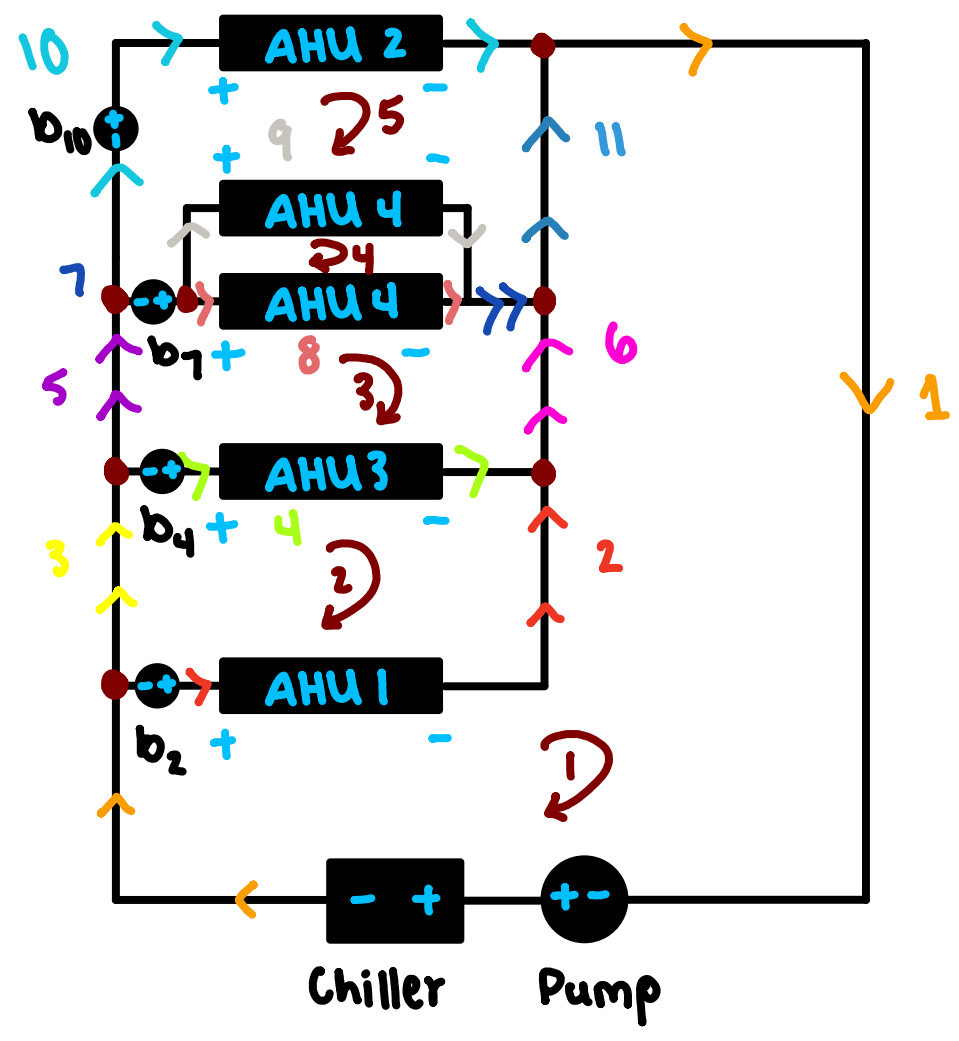 10
AHU 2
+ -
b10
+
-
5
9
11
+ -
AHU 4
4
7
- +
AHU 4
b7
+ 8 -
6
3
5
1
- +
AHU 3
b4
+ 4 -
3
2
2
- +
AHU 1
b2
+ -
1
- +
+ -
Chiller
Pump